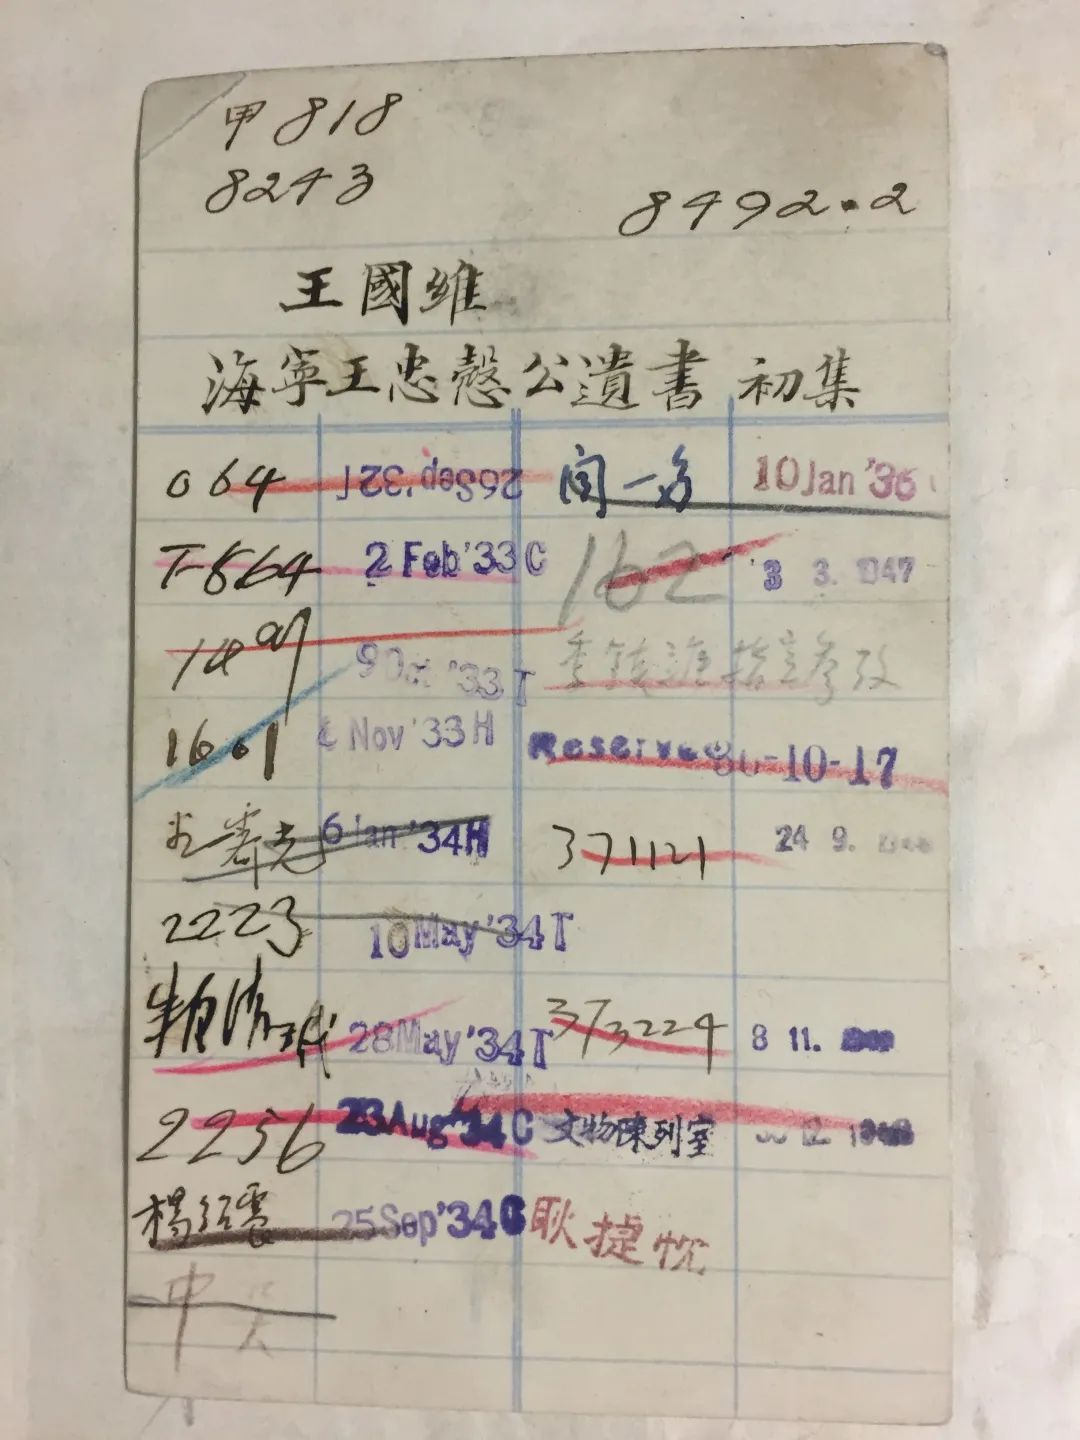 甲818
8243
8492.2
王國維
海寧王忠慤公遺書 初集
064 26Sep.'32T 闻一多 10Jan'36
T-564 2 Feb'33C 162 3 3. 1947
9Oct '33T 指定參攷
1601 Nov'33H Reserve 36-10-17
6Jan '34H 371121 24 9.
2223 10May'34T
28May'34T 373224 8 11.
2256 23Aug'34C 文物陳列室 12
楊紹震 25Sep'34C 耿捷忱
中